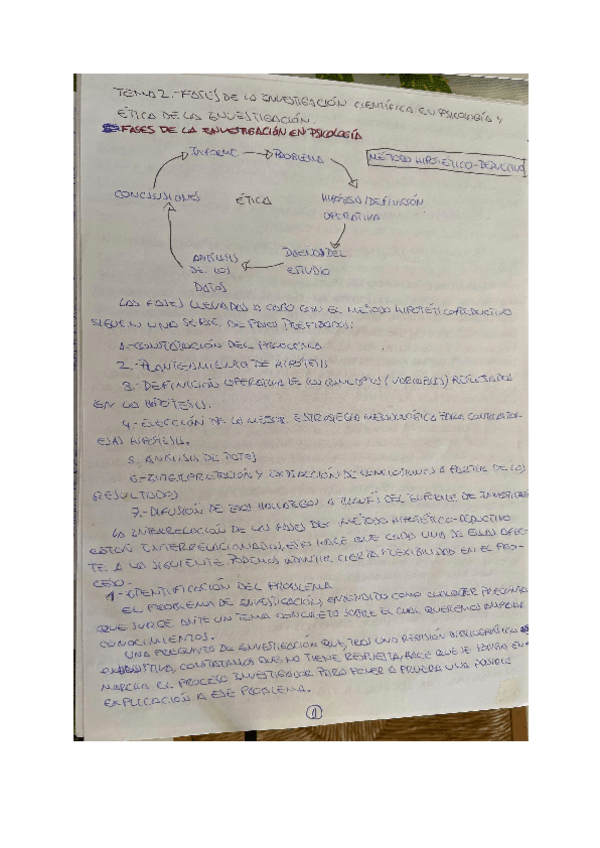 TEMA 2.- FASES DE LA INVESTIGACIÓN CIENTÍFICA EN PSICOLOGÍA Y
ÉTICA DE LA INVESTIGACIÓN.
FASES DE LA INVESTIGACIÓN EN PSICOLOGÍA
INFORME → PROBLEMA
MÉTODO HIPOTÉTICO-DEDUCTIVO
CONCLUSIONES ÉTICA HIPÓTESIS/DEFINICIÓN
OPERATIVA
ANÁLISIS DISEÑO DEL
DE LOS ESTUDIO
DATOS
LAS FASES LLEVADAS A CABO CON EL MÉTODO HIPOTÉTICO-DEDUCTIVO
SIGUEN UNA SERIE DE PASOS PREFIJADOS:
1.- CONSTATACIÓN DEL PROBLEMA
2.- PLANTEAMIENTO DE HIPÓTESIS
3.- DEFINICIÓN OPERATIVA DE LOS CONCEPTOS (VARIABLES) REFLEJADOS
EN LA HIPÓTESIS.
4.- ELECCIÓN DE LA MEJOR ESTRATEGIA METODOLÓGICA PARA CONTRASTAR
ESAS HIPÓTESIS.
5. ANÁLISIS DE DATOS
6.- INTERPRETACIÓN Y EXTRACCIÓN DE CONCLUSIONES A PARTIR DE LOS
RESULTADOS
7.- DIFUSIÓN DE ESOS HALLAZGOS A TRAVÉS DEL INFORME DE INVESTIGACIÓN
LA INTERRELACIÓN DE LAS FASES DEL MÉTODO HIPOTÉTICO-DEDUCTIVO
ESTÁN INTERRELACIONADAS, ESTO HACE QUE CADA UNA DE ELLAS AFEC-
TE A LA SIGUIENTE PODEMOS ADMITIR CIERTA FLEXIBILIDAD EN EL PRO-
CESO.
1.- IDENTIFICACIÓN DEL PROBLEMA
EL PROBLEMA DE INVESTIGACIÓN, ENTENDIDO COMO CUALQUIER PREGUNTA
QUE SURGE ANTE UN TEMA CONCRETO SOBRE EL CUAL QUEREMOS AMPLIAR
CONOCIMIENTOS.
UNA PREGUNTA DE INVESTIGACIÓN QUE, TRAS UNA REVISIÓN BIBLIOGRÁFICA
EXHAUSTIVA, CONSTATAMOS QUE NO TIENE RESPUESTA, HACE QUE SE PONGA EN
MARCHA EL PROCESO INVESTIGADOR PARA PONER A PRUEBA UNA POSIBLE
EXPLICACIÓN A ESE PROBLEMA.
1